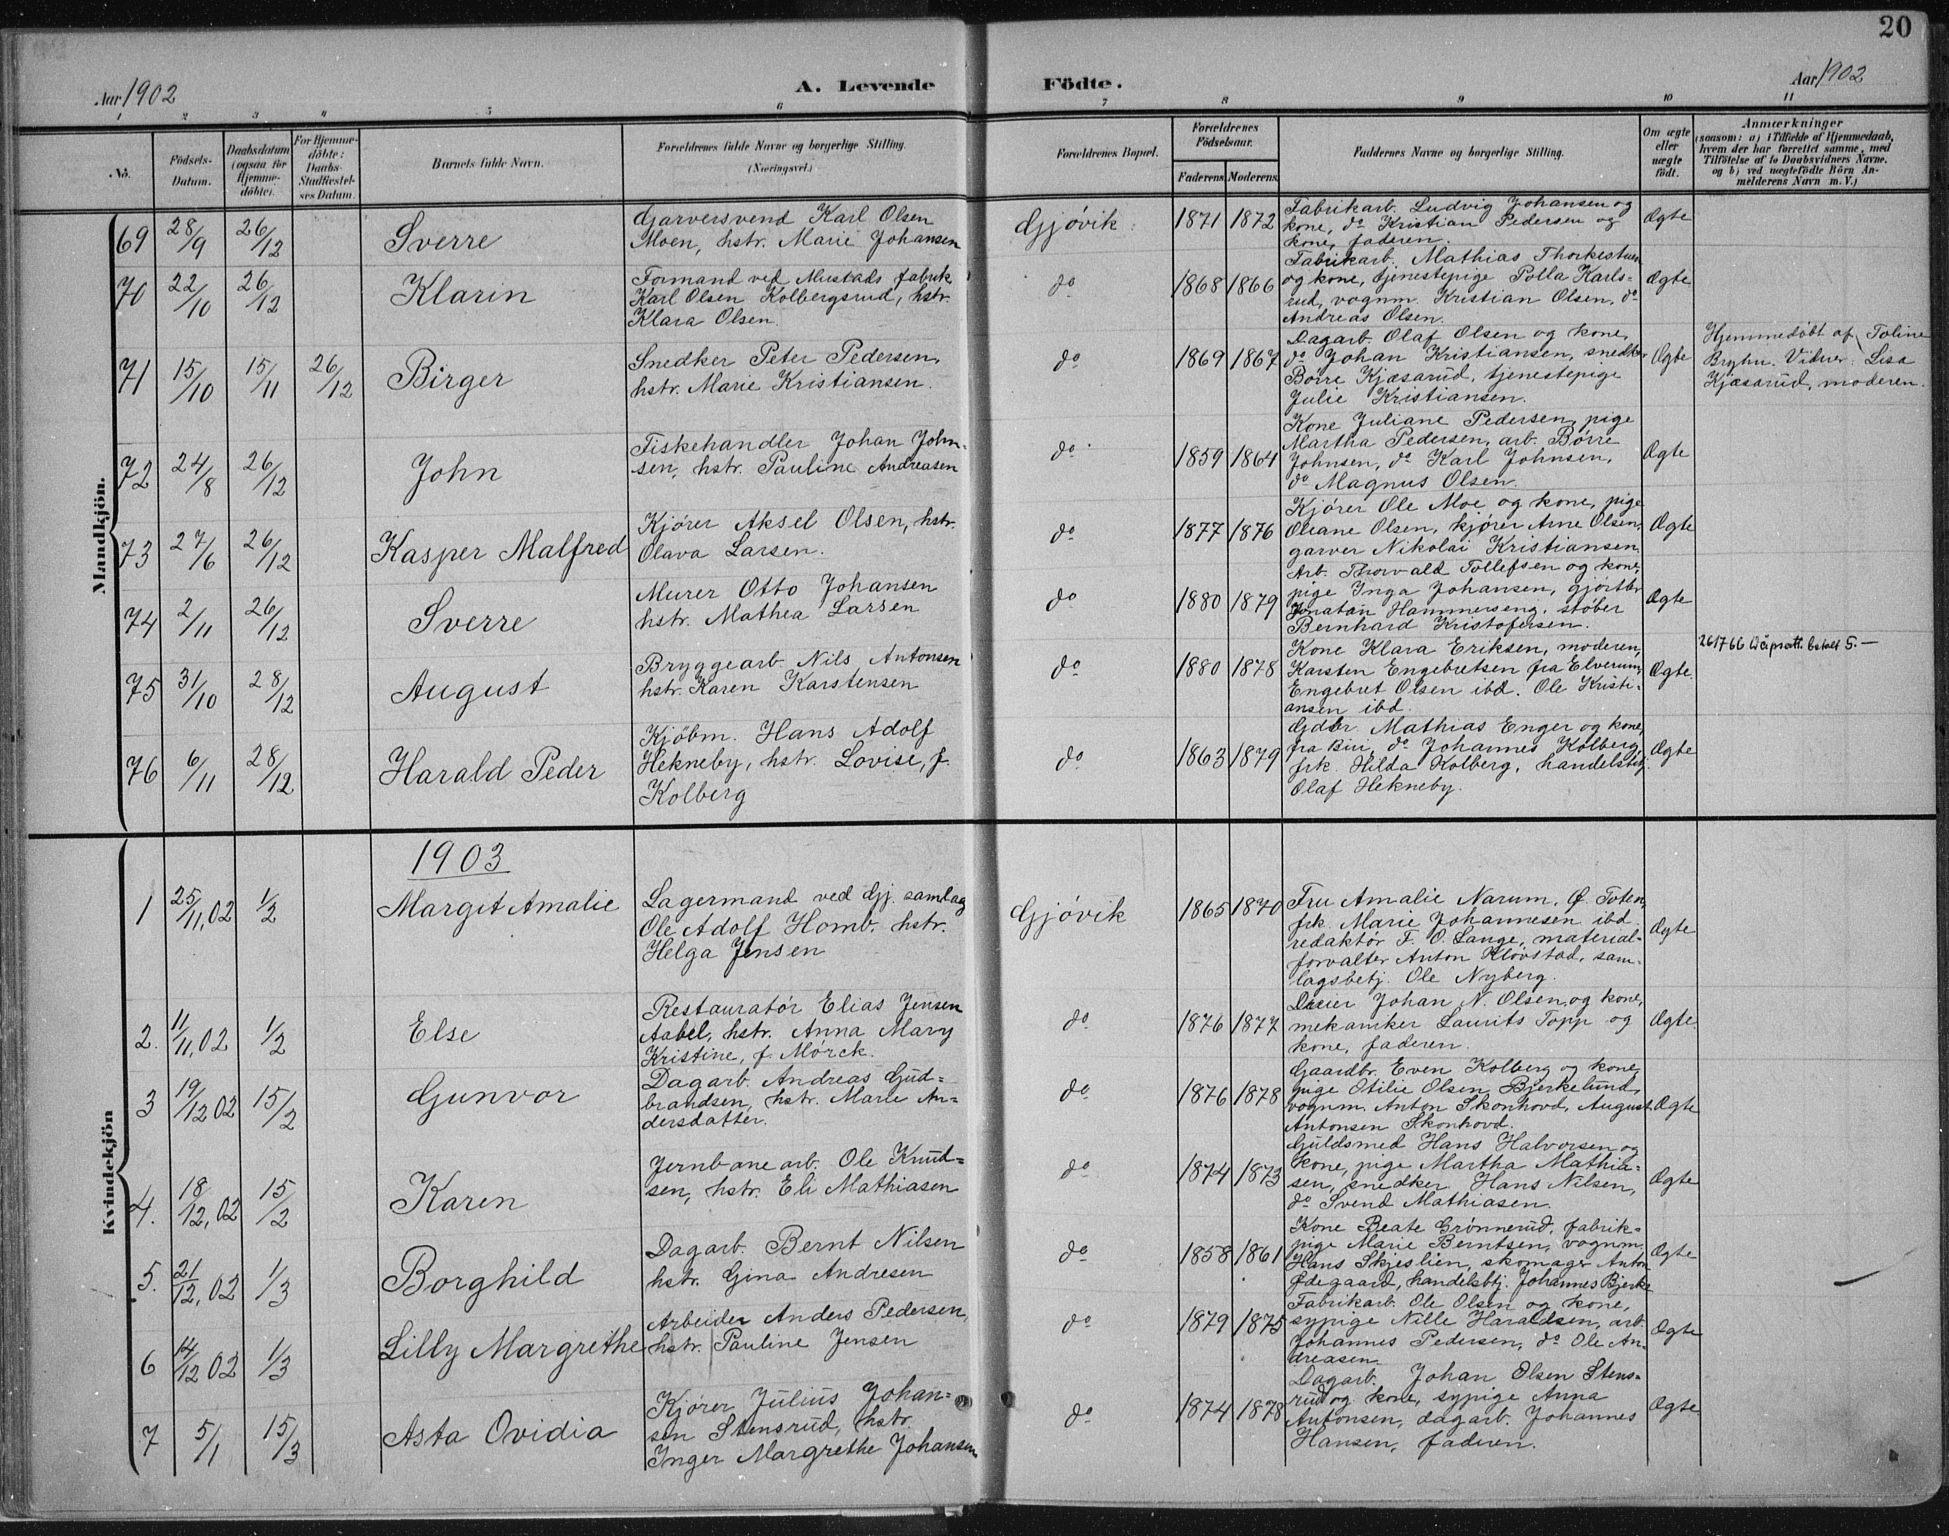 20
Aar 1902
A. Levende
Födte.
Aar 1902
1 2 3 4 5 6 7 8 9 10 11
No.
Födsels-
Datum.
Daabsdatum
(ogsaa for
Hjemme-
döbte).
For Hjemme-
döbte:
Daabs-
Stadfæstel-
ses Datum.
Barnets fulde Navn.
Forældrenes fulde Navne og borgerlige Stilling.
(Næringsvei.)
Forældrenes Bopæl.
Forældrenes
Födselsaar.
Faderens Moderens
Faddernes Navne og borgerlige Stilling.
Om ægte
eller
uægte
födt.
Anmærkninger
(saasom: a) i Tilfælde af Hjemmedaab,
hvem der har forrettet samme, med
Tilföielse af to Daabsvidners Navne,
og b) ved uægtefödte Börn An-
melderens Navn m. V.)
Mandkjön.
69 28/9 26/12 Sverre
Garversvend Karl Olsen
Moen, hstr. Marie Johansen
Gjøvik 1871 1872
Fabrikarb. Ludvig Johansen og
kone, do Kristian Pedersen og
kone, faderen.
Ægte
70 22/10 26/12 Klarin
Formand ved Mustads fabrik
Karl Olsen Kolbergsrud, hstr.
Klara Olsen.
do 1868 1866
Fabrikarb. Mathias Thorkestuen
og kone, tjenestepige Polla Karls-
rud, vognm. Kristian Olsen, do
Andreas Olsen.
Ægte
71 15/10 15/11 26/12 Birger
Snedker Peter Pedersen,
hstr. Marie Kristiansen.
do 1869 1867
Dagarb. Olaf Olsen og kone,
do Johan Kristiansen, snedker
Børre Kjæsarud, tjenestepige
Julie Kristiansen.
Ægte
Hjemmedøbt af Toline
Bryhn. Vidner: Lisa
Kjæsarud, moderen.
72 24/8 26/12 John
Fiskehandler Johan John-
sen, hstr. Pauline Andreasen
do 1859 1864
Kone Juliane Pedersen, pige
Martha Pedersen, arb. Børre
Johnsen, do Karl Johnsen,
do Magnus Olsen.
Ægte
73 27/6 26/12 Kasper Malfred
Kjører Aksel Olsen, hstr.
Olava Larsen.
do 1877 1876
Kjører Ole Moe og kone, pige
Oliane Olsen, kjører Arne Olsen,
garver Nikolai Kristiansen.
Ægte
74 2/11 26/12 Sverre
Murer Otto Johansen
hstr. Mathea Larsen
do 1880 1879
Arb. Thorvald Tollefsen og kone,
pige Inga Johansen, gjørtler
Jonatan Hammerseng, støber
Bernhard Kristofersen.
Ægte
75 31/10 28/12 August
Bryggearb. Nils Antonsen
hstr. Karen Karstensen
do 1880 1878
Kone Klara Eriksen, moderen,
Karsten Engebretsen fra Elverum,
Engebret Olsen ibd. Ole Kristi-
ansen ibd.
Ægte
76 6/11 28/12 Harald Peder
Kjøbm. Hans Adolf
Hekneby, hstr. Lovise, f.
Kolberg
do 1863 1879
Gdbr. Mathias Enger og kone,
fra Biri, do Johannes Kolberg,
frk. Hilda Kolberg, handelsbtj.
Olaf Hekneby.
Ægte
1903
Kvindekjön
1 25/11,02 1/2 Margit Amalie
Lagermand ved Gj. samlag
Ole Adolf Homb. hstr.
Helga Jensen
Gjøvik 1865 1870
Fru Amalie Narum, Ø. Toten,
frk. Marie Johannesen ibd.
redaktør F. O. Lange, material-
forvalter Anton Kløvstad, sam-
lagsbetj. Ole Nyberg.
Ægte
2. 11/11,02 1/2 Else
Restauratør Elias Jensen
Aabel, hstr. Anna Mary
Kristine, f. Mørck.
do 1876 1877
Johan N. Olsen og kone,
mekaniker Laurits Topp og
kone, faderen.
Ægte.
3 19/12 02 15/2 Gunvor
Dagarb. Andreas Gud-
brandsen, hstr. Marie An-
dersdatter.
do 1876 1878
Gaardbr. Even Kolberg og kone,
pige Otilie Olsen Bjerkelund,
vognm. Anton Skonhovd, August
Antonsen Skonhovd.
Ægte
4. 18/12,02 15/2 Karen
Jernbanearb. Ole Knud-
sen, hstr. Eli Mathiasen
do 1874 1873
Guldsmed Hans Halvorsen og
kone, pige Martha Mathia-
sen, snedker Hans Nilsen,
do Svend Mathiasen.
Ægte
5. 21/12,02 1/3 Borghild
Dagarb. Bernt Nilsen
hstr. Gina Andresen
do 1858 1861
Kone Beate Grønnerud, fabrik-
pige Marie Berntsen, vognm.
Hans Skjeslien, skomager Anton
Ødegaard, handelsbtj. Johannes Bjerke
Ægte
6 14/12 02 1/3 Lilly Margrethe
Arbeider Anders Pedersen,
hstr. Pauline Jensen
do 1879 1875
Fabrikarb. Ole Olsen og kone,
sypige Nille Haraldsen, arb.
Johannes Pedersen, do Ole An-
dreasen.
Ægte
7 5/1 15/3 Asta Ovidia
Kjører Julius Johan-
sen Stensrud, hstr.
Inger Margrethe Johansen
do 1874 1878
Dagarb. Johan Olsen Stens-
rud og kone, sypige Anna
Antonsen, dagarb. Johannes
Hansen, faderen.
Ægte.